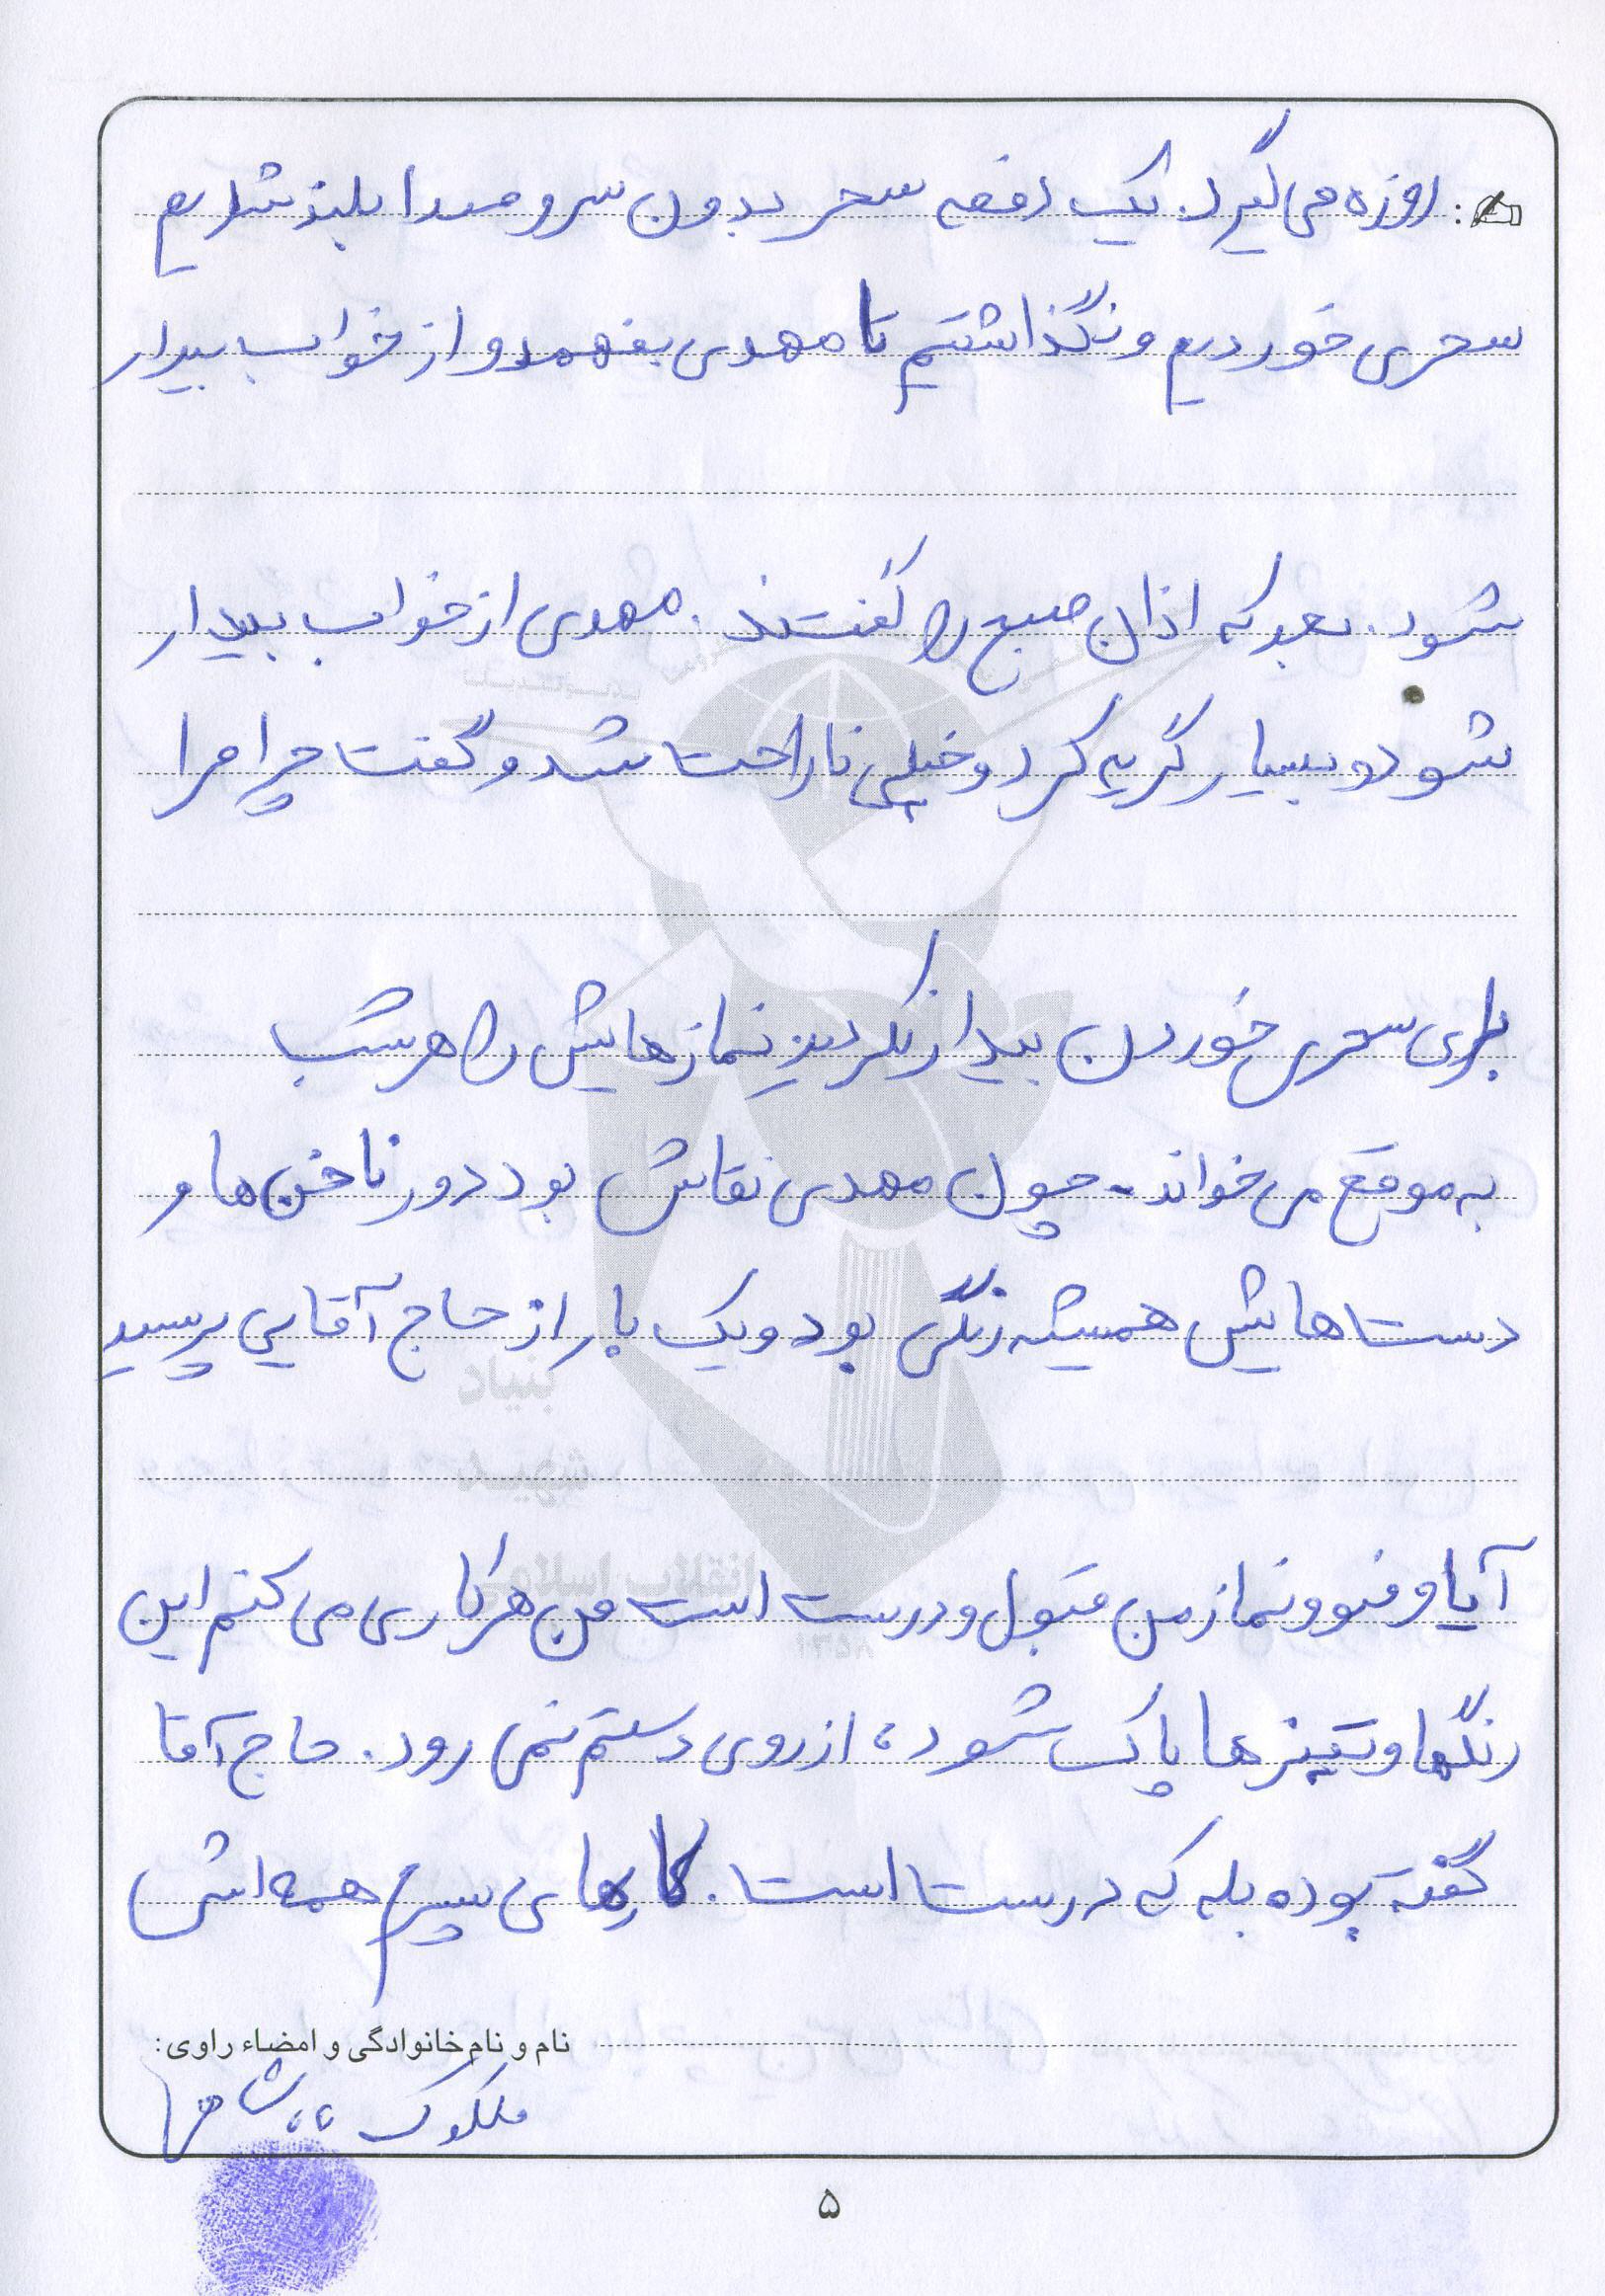 روزه می گیرد. یک دفعه سحر بدون سر و صدا بلند شدیم
سحری خوردیم و نگذاشتیم تا مهدی بفهمد و از خواب بیدار
شود. بعد که اذان صبح را گفتند. مهدی از خواب بیدار
شود و بسیار گریه کرد و خیلی ناراحت شد و گفت چرا مرا
برای سحری خوردن بیدار نکردید نمازهایش را هر شب
به موقع می خواند - چون مهدی نقاش بود دور ناخن ها و
دست هایش همیشه رنگی بود و یک بار از حاج آقایی پرسید
آیا وضو و نماز من قبول و درست است من هر کاری می کنم این
رنگها و تینرها پاک شود، از روی دستم نمی رود. حاج آقا
گفته بوده بله که درست است. کارهای پسرم همه اش
نام و نام خانوادگی و امضاء راوی:
ملکوک
بنیاد
شهید
انقلاب اسلامی
۵